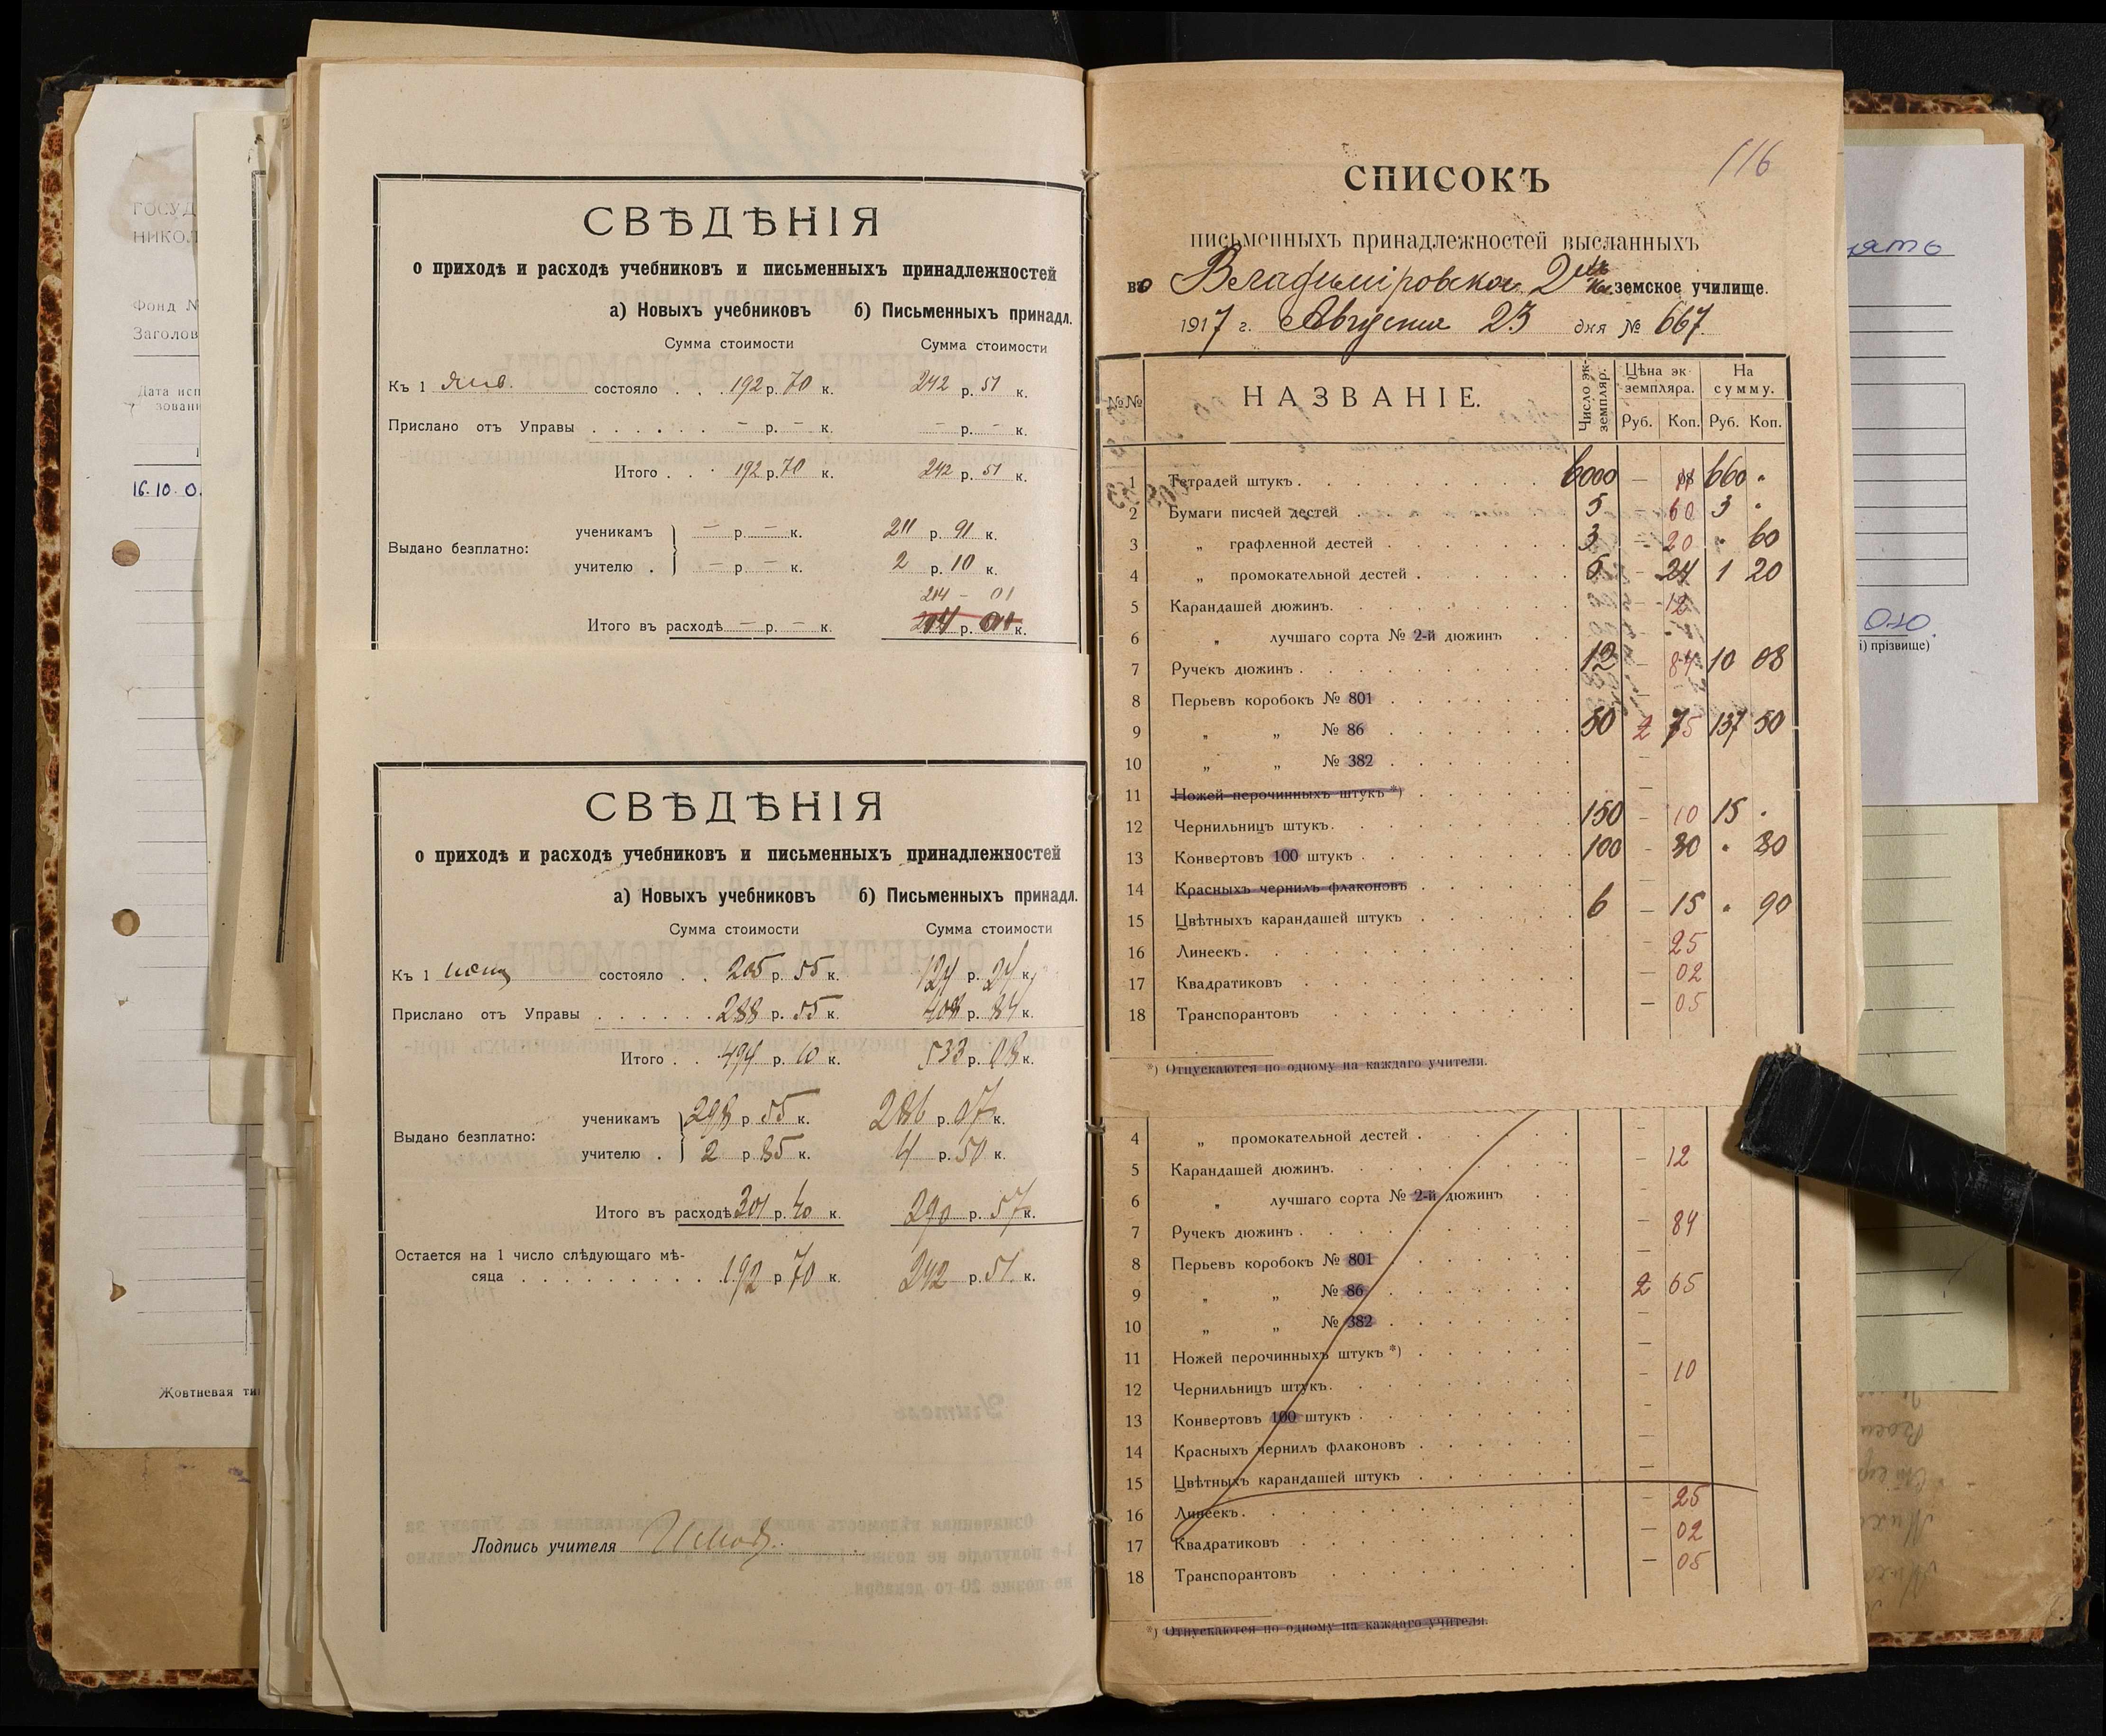 СВѢДѢНІЯ
о приходѣ и расходѣ учебниковъ и письменныхъ принадлежностей
а) Новыхъ учебниковъ б) Письменныхъ принадл.
Сумма стоимости Сумма стоимости
Къ 1 янв. состояло . . . 192 р. 70 к. 242 р. 51 к.
Прислано отъ Управы . . . . . . – р. – к. – р. – к.
Итого . . . 192 р. 70 к. 242 р. 51 к.
ученикамъ – р. – к. 211 р. 91 к.
Выдано безплатно:
учителю . – р – к. 2 р. 10 к.
214 – 01
Итого въ расходѣ – р. – к. р. к.
СВѢДѢНІЯ
о приходѣ и расходѣ учебниковъ и письменныхъ принадлежностей
а) Новыхъ учебниковъ б) Письменныхъ принадл.
Сумма стоимости Сумма стоимости
Къ 1 состояло . . 205 р. 55 к. 124 р. 24 к.
Прислано отъ Управы . . . . . . 288 р. 55 к. 408 р. 84 к.
Итого . . 494 р. 10 к. 533 р. 08 к.
ученикамъ 298 р 55 к. 286 р. 07 к.
Выдано безплатно:
учителю . 2 р. 85 к. 4 р. 50 к.
Итого въ расходѣ 301 р. 40 к. 290 р. 57 к.
Остается на 1 число слѣдующаго мѣ-
сяца . . . . . . . . . . 192 р 70 к. 242 р. 51 к.
Подпись учителя
116
СПИСОКЪ
письменныхъ принадлежностей высланныхъ
во Владиміровское 2х кл. земское училище.
1917 г. Августа 23 дня № 667.
№№ НАЗВАНІЕ. Число эк-земпляр. Цѣна эк-земпляра. На сумму.
Руб. Коп. Руб. Коп.
1 Тетрадей штукъ . 6000 – 11 660 "
2 Бумаги писчей дестей . 5 60 3 "
3 „ графленной дестей . 3 – 20 " 60
4 „ промокательной дестей . 5 – 24 1 20
5 Карандашей дюжинъ. – 12
6 „ лучшаго сорта № 2-й дюжинъ
7 Ручекъ дюжинъ . 12 – 84 10 08
8 Перьевъ коробокъ № 801
9 „ „ № 86 50 2 75 137 50
10 „ „ № 382 –
11 Ножей перочинныхъ штукъ *)
12 Чернильницъ штукъ. 150 – 10 15 "
13 Конвертовъ 100 штукъ . 100 – 30 " 30
14 Красныхъ чернилъ флаконовъ –
15 Цвѣтныхъ карандашей штукъ . 6 – 15 " 90
16 Линеекъ. – 25
17 Квадратиковъ – 02
18 Транспорантовъ – 05
*) Отпускаются по одному на каждаго учителя.
4 „ промокательной дестей . –
5 Карандашей дюжинъ. – 12
6 „ лучшаго сорта № 2-й дюжинъ –
7 Ручекъ дюжинъ . – 84
8 Перьевъ коробокъ № 801 –
9 „ „ № 86 2 65
10 „ „ № 382 –
11 Ножей перочинныхъ штукъ *) –
12 Чернильницъ штукъ. – 10
13 Конвертовъ 100 штукъ . –
14 Красныхъ чернилъ флаконовъ –
15 Цвѣтныхъ карандашей штукъ –
16 Линеекъ. – 25
17 Квадратиковъ – 02
18 Транспорантовъ – 05
*) Отпускаются по одному на каждаго учителя.
ГОСУД
НИКОЛ
Фонд №
Заголов
Дата исп
зовани
16. 10. 0
Жовтневая ти
ять
і) прізвище)